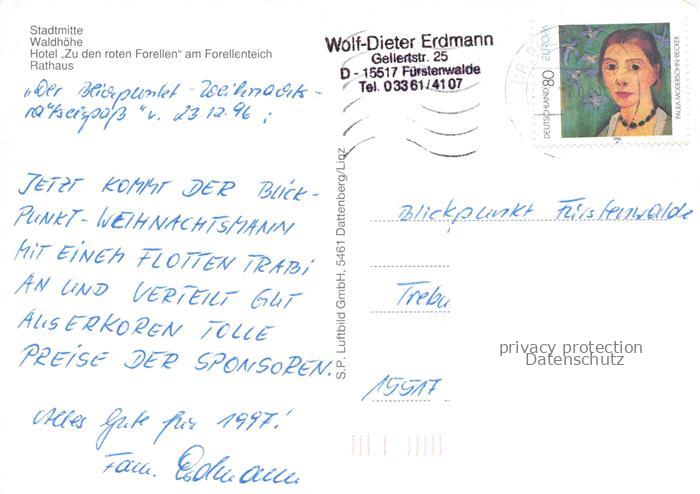 Stadtmitte
Waldhöhe
Hotel „Zu den roten Forellen" am Forellenteich
Rathaus
„Der Blickpunkt-Weihnachts-
rätselspaß" v. 23.12.96:
JETZT KOMMT DER BLICK-
PUNKT-WEIHNACHTSMANN
MIT EINEM FLOTTEN TRABI
AN UND VERTEILT GUT
AUSERKOREN TOLLE
PREISE DER SPONSOREN.
Alles Gute für 1997!
Fam. Erdmann
S.P. Luftbild GmbH, 5461 Dattenberg/Linz
Wolf-Dieter Erdmann
Gellertstr. 25
D - 15517 Fürstenwalde
Tel. 03361/4107
DEUTSCHLAND 80 EUROPA
PAULA MODERSOHN-BECKER
Blickpunkt Fürstenwalde
Trebu
15517
privacy protection
Datenschutz